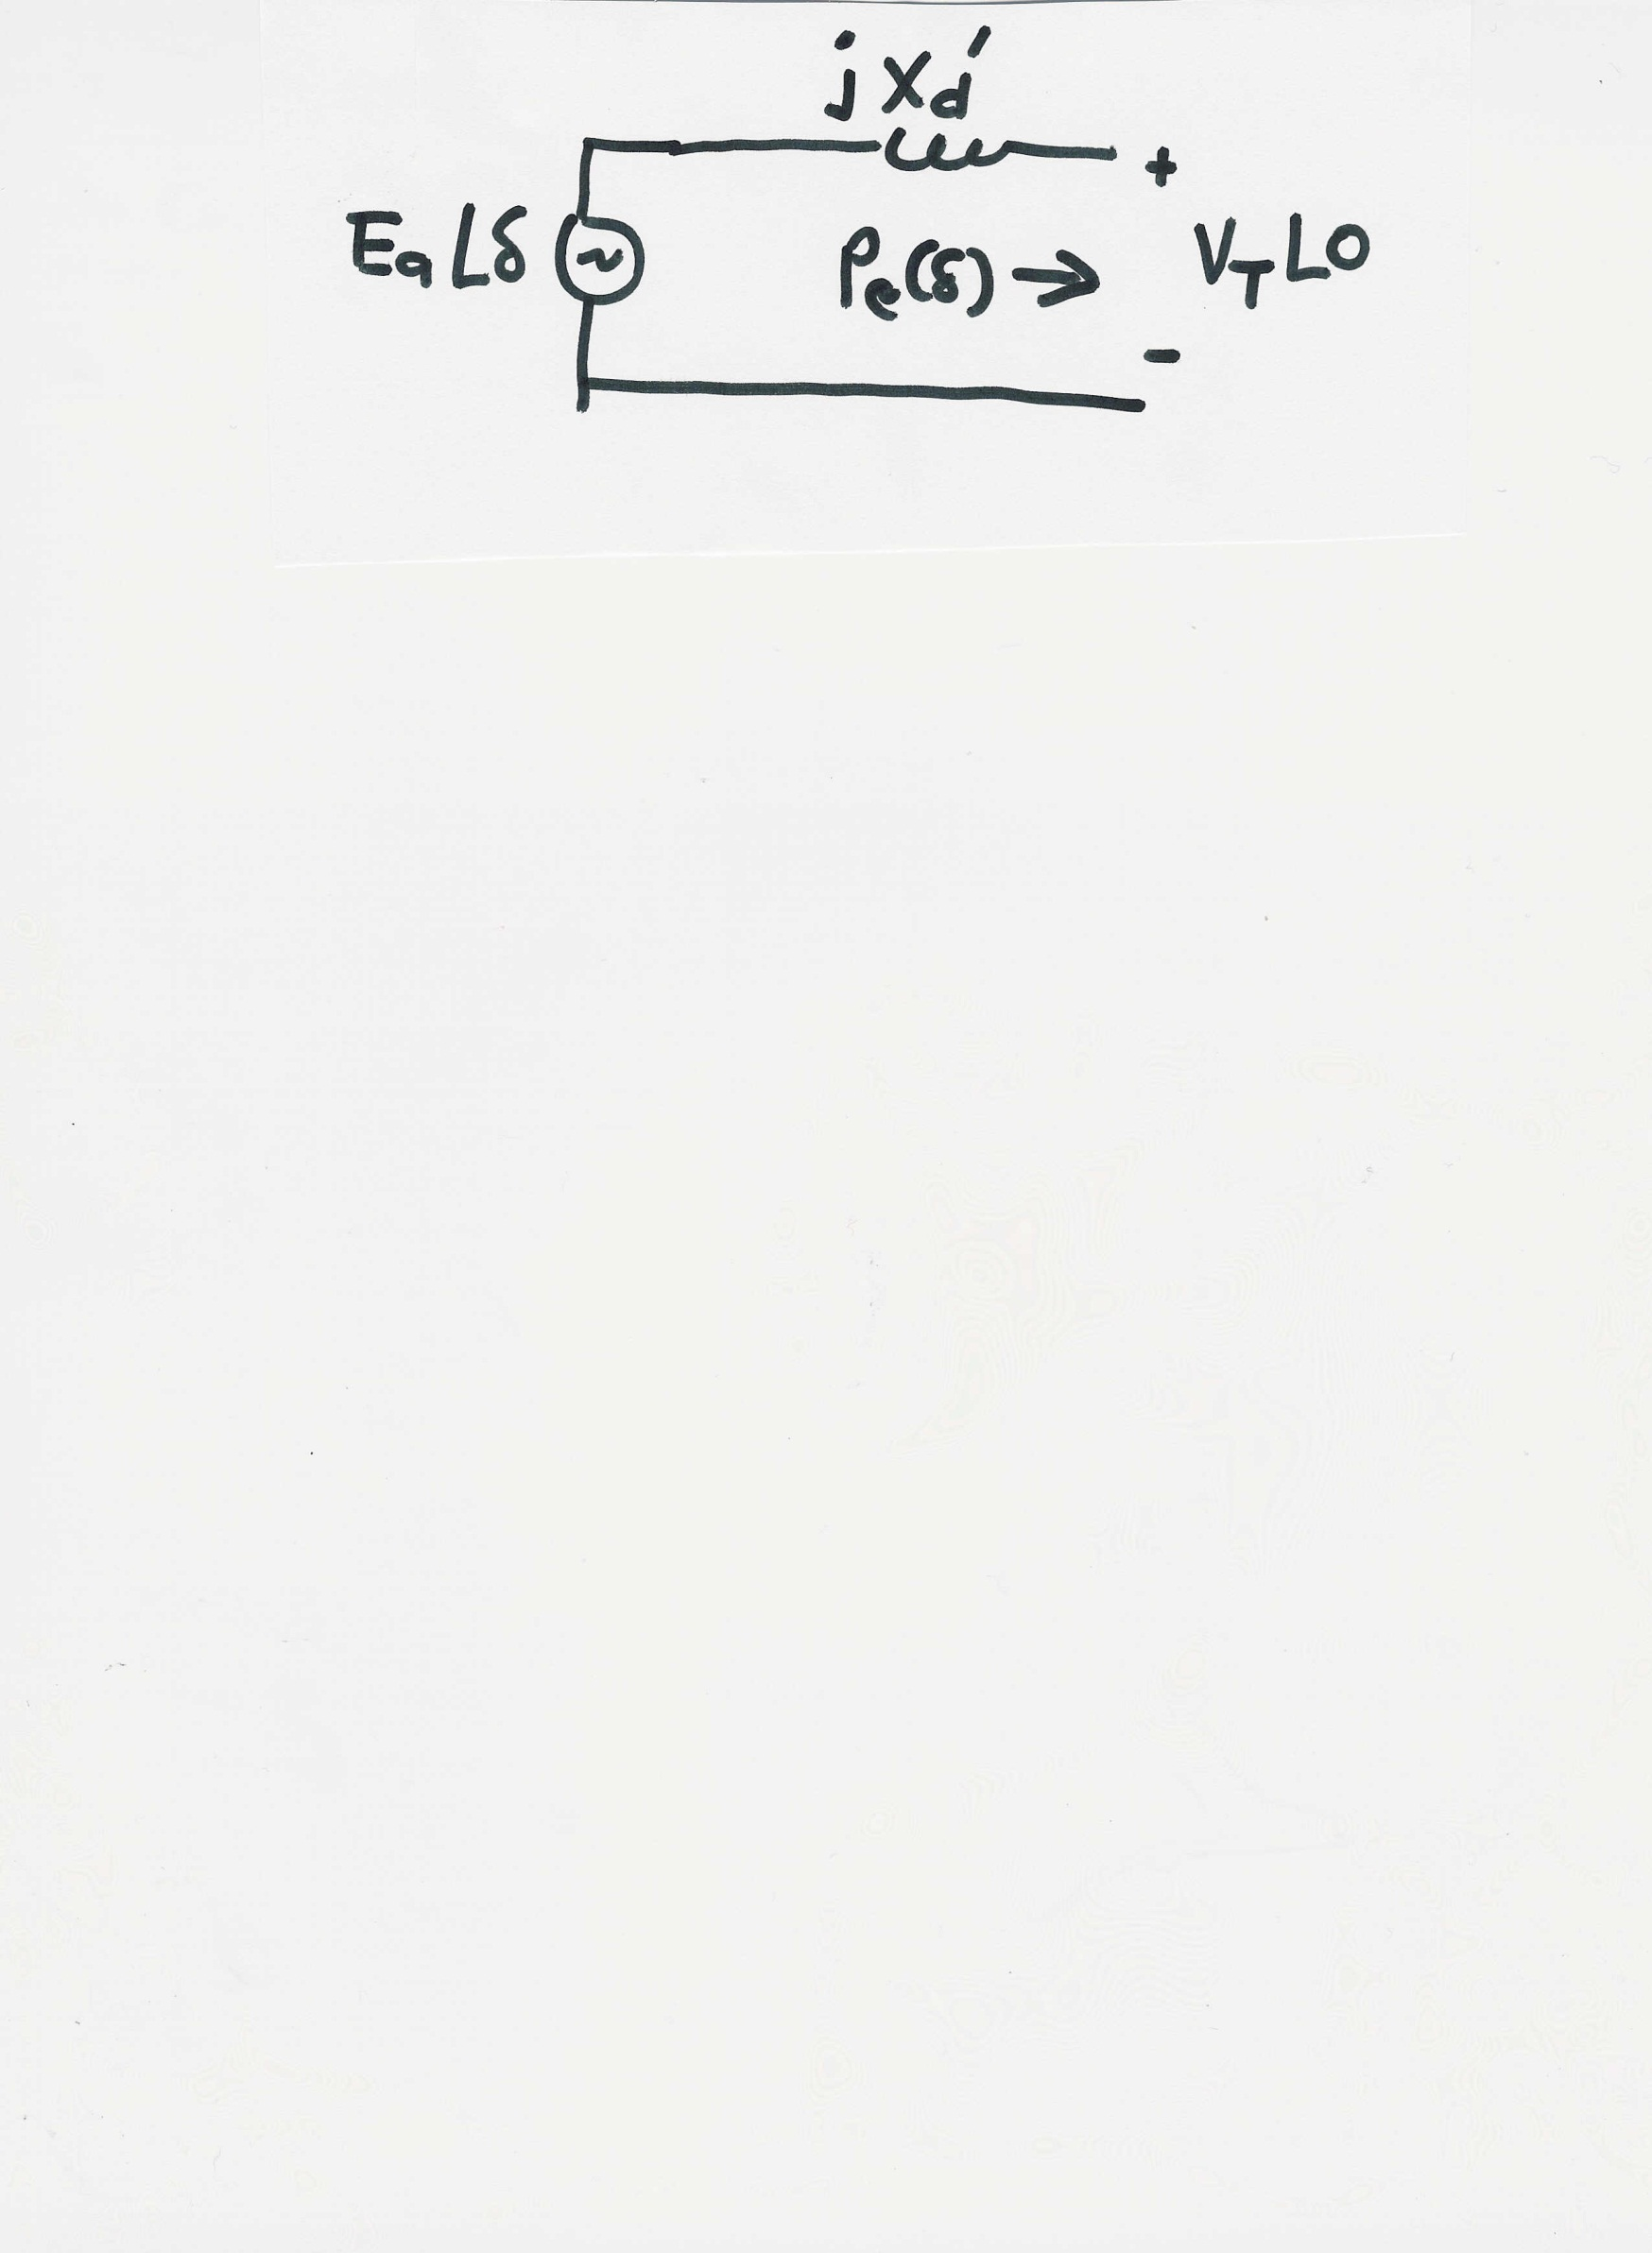 jXd'
+
Ea∠δ ~ Pe(δ) → VT∠0
-